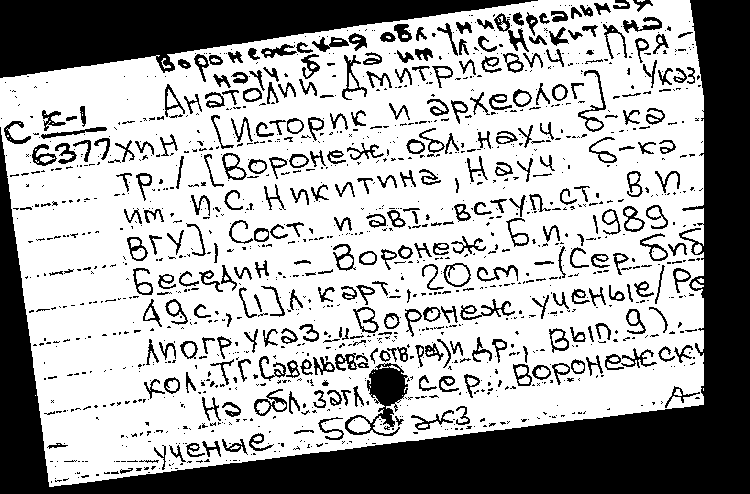 Воронежская обл. универсальная
науч. б-ка им. И.С. Никитина.
Анатолий Дмитриевич Пря-
С К-1
6377
хин : [Историк и археолог] : Указ.
тр. / [Воронеж. обл. науч. б-ка
им. И.С. Никитина, Науч. б-ка
ВГУ]; Сост. и авт. вступ. ст. В.И.
Беседин. - Воронеж: Б.и., 1989. -
49 с., [1] л. карт.; 20 cm. - (Сер. биб
лиогр. указ. "Воронеж. ученые/ Ре
кол.: Т.Г. Савельева (отв. ред) и др.; Вып. 9).
На обл. загл. сер.: Воронежски
ученые. - 500 экз.